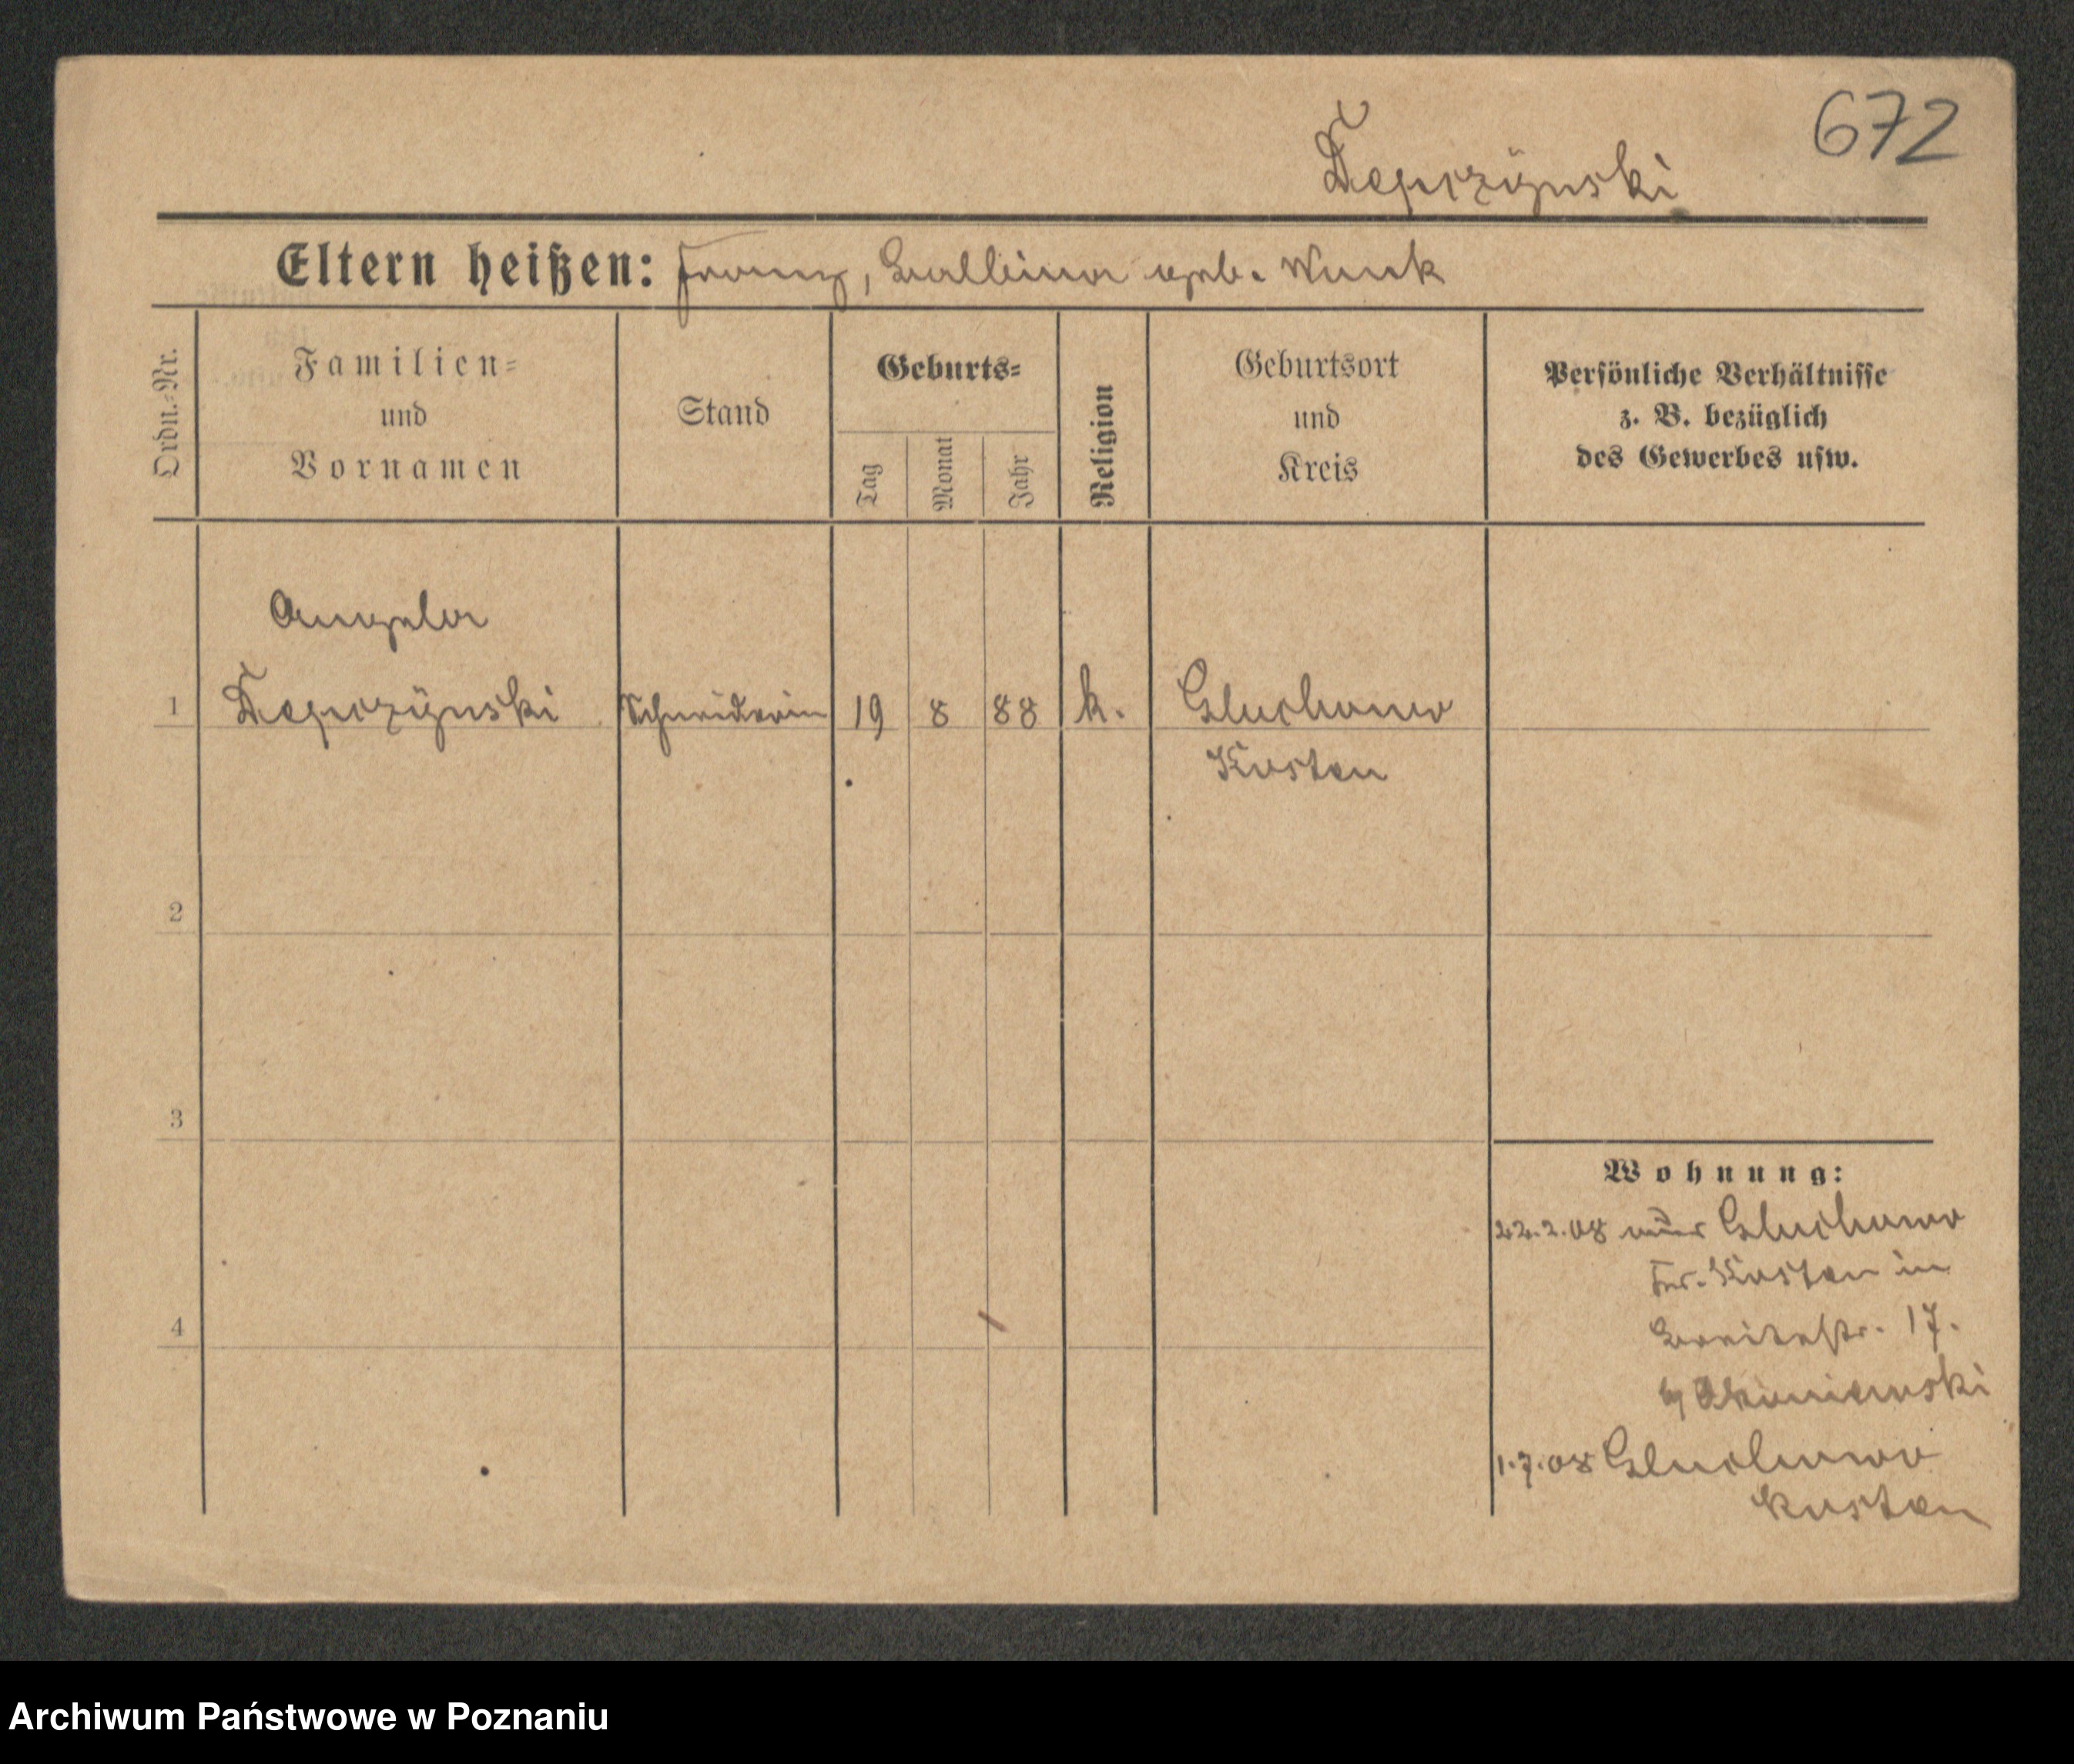 672
Depczÿnski
Eltern heißen: Franz, Balbina geb. Wnuk
Ordn.-Nr.
Familien-
und
Vornamen
Stand
Geburts-
Tag
Monat
Jahr
Religion
Geburtsort
und
Kreis
Persönliche Verhältnisse
z. B. bezüglich
des Gewerbes usw.
Angela
1 Depczÿnski Schneiderin 19 8 88 k. Gluchowo
Kosten
2
3
4
Wohnung:
22.2.08 aus Gluchowo
Kr. Kosten in
Breitestr. 17.
b/ Skoniewski
1.7.08 Gluchowo
Kosten
Archiwum Państwowe w Poznaniu